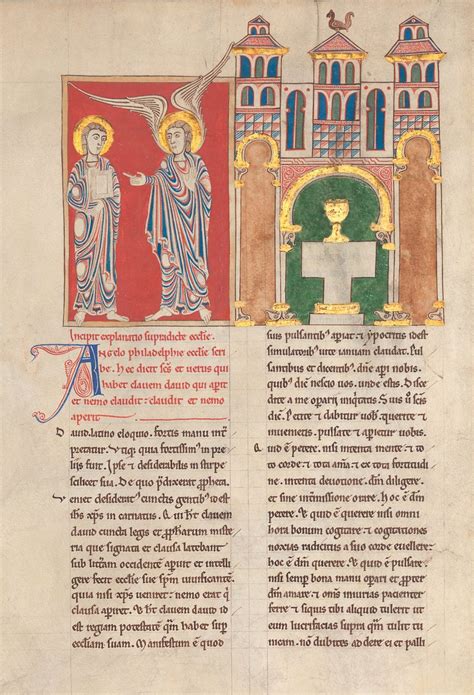 Incipit explanatio supradicte ecclie.
Angelo philadelphie ecclie scri
be. Hec dicit scs et verus qui
habet clavem david qui aperit
et nemo claudit: claudit et nemo
aperit.
David latino eloquio. fortis manu int
pretatur. fortissimus in pre
liis fuit. Ipse et desiderabilis in stirpe
scilicet sua. De quo dixerat propheta.
Veniet desideratus cunctis gentibus id est
xps in carnatus. Qui habet clavem
david cuncta legis et prophetarum miste
ria que signata et clausa latebant
sub littera occidente aperuit et intelli
gere fecit ecclie sue spm vivificante.
quia nisi xps veniens: nemo erat qui
clausa aperiret. Et habet clavem david id
est regiam potestatem qm habet sup
eccliam suam. Manifestum est quod
suis pulsantibus aperiat: et ypocritis id est
simulatoribus vite ianuam claudat. Pul
santibus et dicentibus. dne aperi nobis.
quibus dicit nescio vos. unde estis. Disce
dite a me operarii iniquitatis. Et suis.
Petite et dabitur vobis. querite et
invenietis. pulsate et aperiet vobis.
Quid est petere. nisi intentis manibus et to
to corde et tota anima et ex tota fortitudi
ne. intenta devotione. dm diligere.
et sine intermissione orare. Hoc est dm
petere. Et quid est querere nisi omni
hora bonum cogitare et cogitationes
noxias radicitus a suo corde evellere.
hoc est dm querere. Et quid est pulsare.
nisi semper bona manu operari et propter
dm amare. et omnis iniurias pacienter
ferre et siquis tibi aliquid tulerit ut
eum lucrifacias supra dato et tulit tu
nicam. non dubites ad dere ei et palli